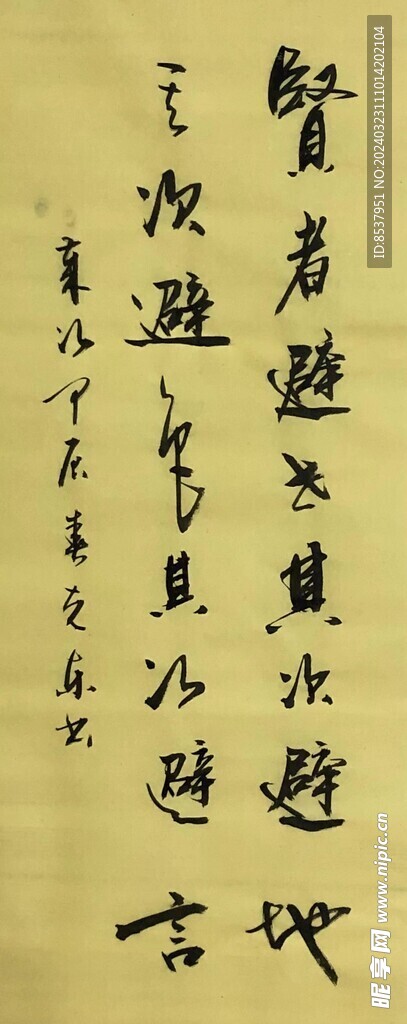 賢者避世其次避地
其次避色其次避言
歲次甲辰春克东书
ID:8537951 NO:20240323111014202104
昵享网 www.nipic.cn